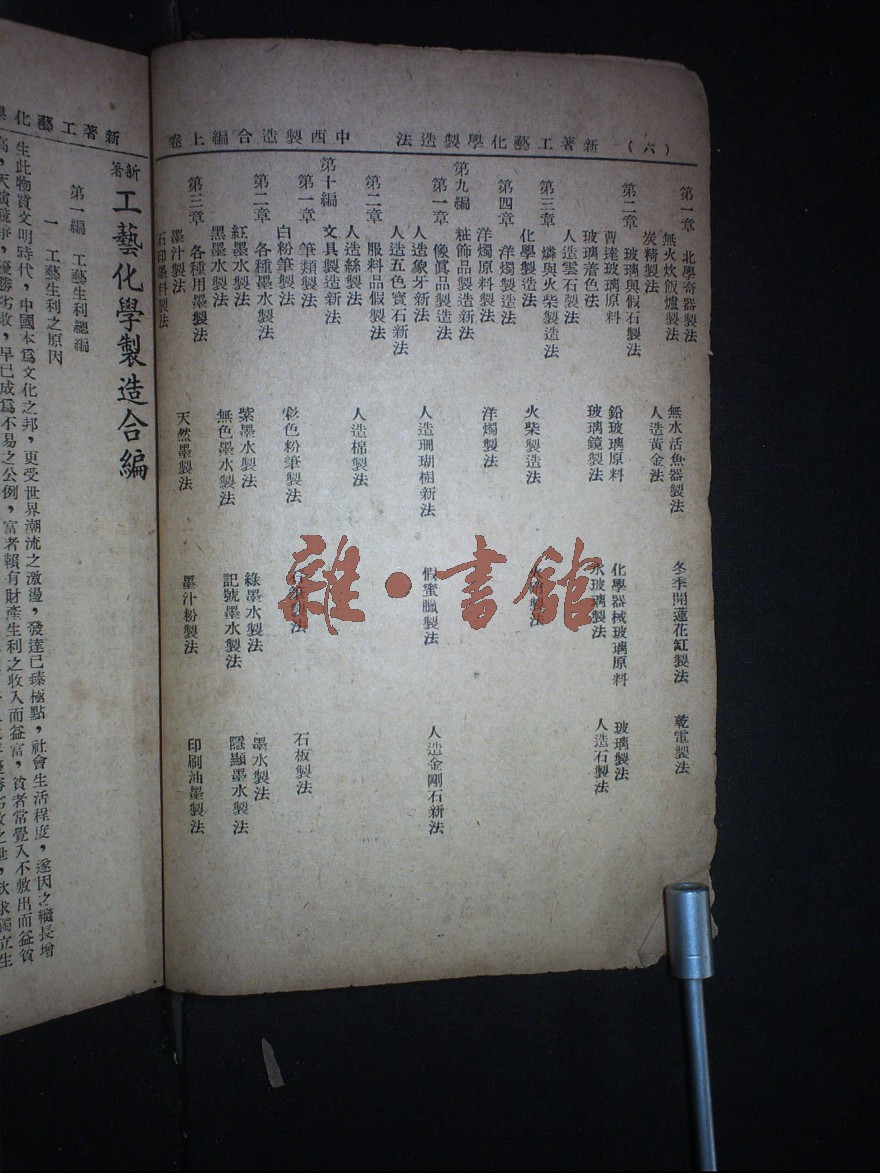 （六）　新著工藝化學製造法　中西製造合編上卷
第一章　北學奇器製法
無火炊飯爐製法　無水活魚器製法　冬季開蓮花缸製法　乾電製法
炭精製法　人造黃金法
第二章　玻璃與假石製法
曹達玻璃原料　鉛玻璃原料　化學器械玻璃原料　玻璃製法
玻璃着色法　玻璃鏡製法　水玻璃製法　人造石製法
人造雲石製法
第三章　燐與火柴製造法
化學製造法　火柴製造法
第四章　洋燭製造法
洋燭原料製法　洋燭製法
第九編　粧飾品製造新法
第一章　像眞品製造法
人造象牙新法　人造珊瑚樹新法　假蜜臘製法　人造金剛石新法
人造五色寶石新法
第二章　服料品假製法
人造絲製法　人造棉製法
第十編　文具製造新法
第一章　筆類製法
白粉筆製法　彩色粉筆製法　石板製法
第二章　各種墨水製法
紅墨水製法　紫墨水製法　綠墨水製法　墨水製法
黑墨水製法　無色墨水製法　記號墨水製法　隱顯墨水製法
第三章　各種用墨製法
墨汁製法　天然墨製法　墨汁粉製法　印刷油墨製法
石印墨料製法
雜·書館
新著工藝化學
新著　工藝化學製造合編
第一編　工藝生利總編
一　工藝生利之原因
生此物質文明時代，中國本爲文化之邦，更受世界潮流之激盪，發達已臻極點，社會生活程度，遂因之繼長增
高，天演競爭，優勝劣敗，早已成爲不易之公例，富者賴有財產生利之收入而益富，貧者常覺入不敷出而益貧